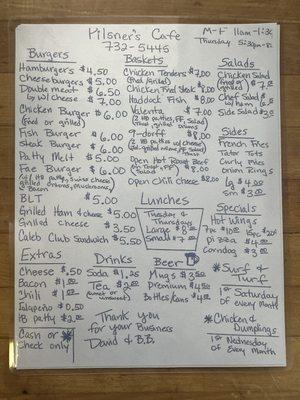 Pilsner's Cafe
732-5445
M-F 11am-1:30
Thursday 5:30pm-8
Burgers
Hamburgers $4.50
Cheeseburgers $5.00
Double meat $6.50
by w/cheese $7.00
Chicken Burger $6.00
(fried or grilled)
Fish Burger $6.00
Steak Burger $6.00
Patty Melt $5.00
Fae Burger $6.00
(1/2 lb patty, Swiss cheese,
grilled onions, Mushrooms,
& Bacon
BLT $5.00
Grilled Ham & cheese $5.00
Grilled Cheese $3.50
Caleb Club Sandwich $5.50
Baskets
Chicken Tenders $7.00
(fried/grilled)
Chicken Fried Steak $8.00
Haddock Fish $8.00
Valenta $7.00
(2 HB patties, FF, Salad)
grilled onions
9-dorff $8.00
(2 HB patties w/cheese
grilled onions, FF, Salad
Toast)
Open Hot Roast Beef $8.00
Open chili cheese $8.00
Salads
Chicken Salad
(fried or grilled) $7.00
Chef Salad
w/Ham
Side Salad
Sides
French Fries
Tator Tots
Curly Fries
Onion Rings
Lg $4.00
Sm $3.00
Lunches
Tuesday &
Thursdays
Large $8.00
Small $7.00
Specials
Hot Wings
7pc $10.00
Pizza $4.00
Corndog $3.00
Surf &
Turf
1st Saturday
of every Month
Chicken &
Dumplings
1st Wednesday
of Every Month
Extras
Cheese $.50
Bacon $1.00
Chili $1.00
Jalapeño $0.50
HB patty $2.00
Cash or
check only
Drinks
Soda $1.25
Tea $2.00
(sweet or
unsweet)
Beer
Mugs $3.00
Premium $4.00
Bottles/Cans
Thank you
for your Business
David & B.B.